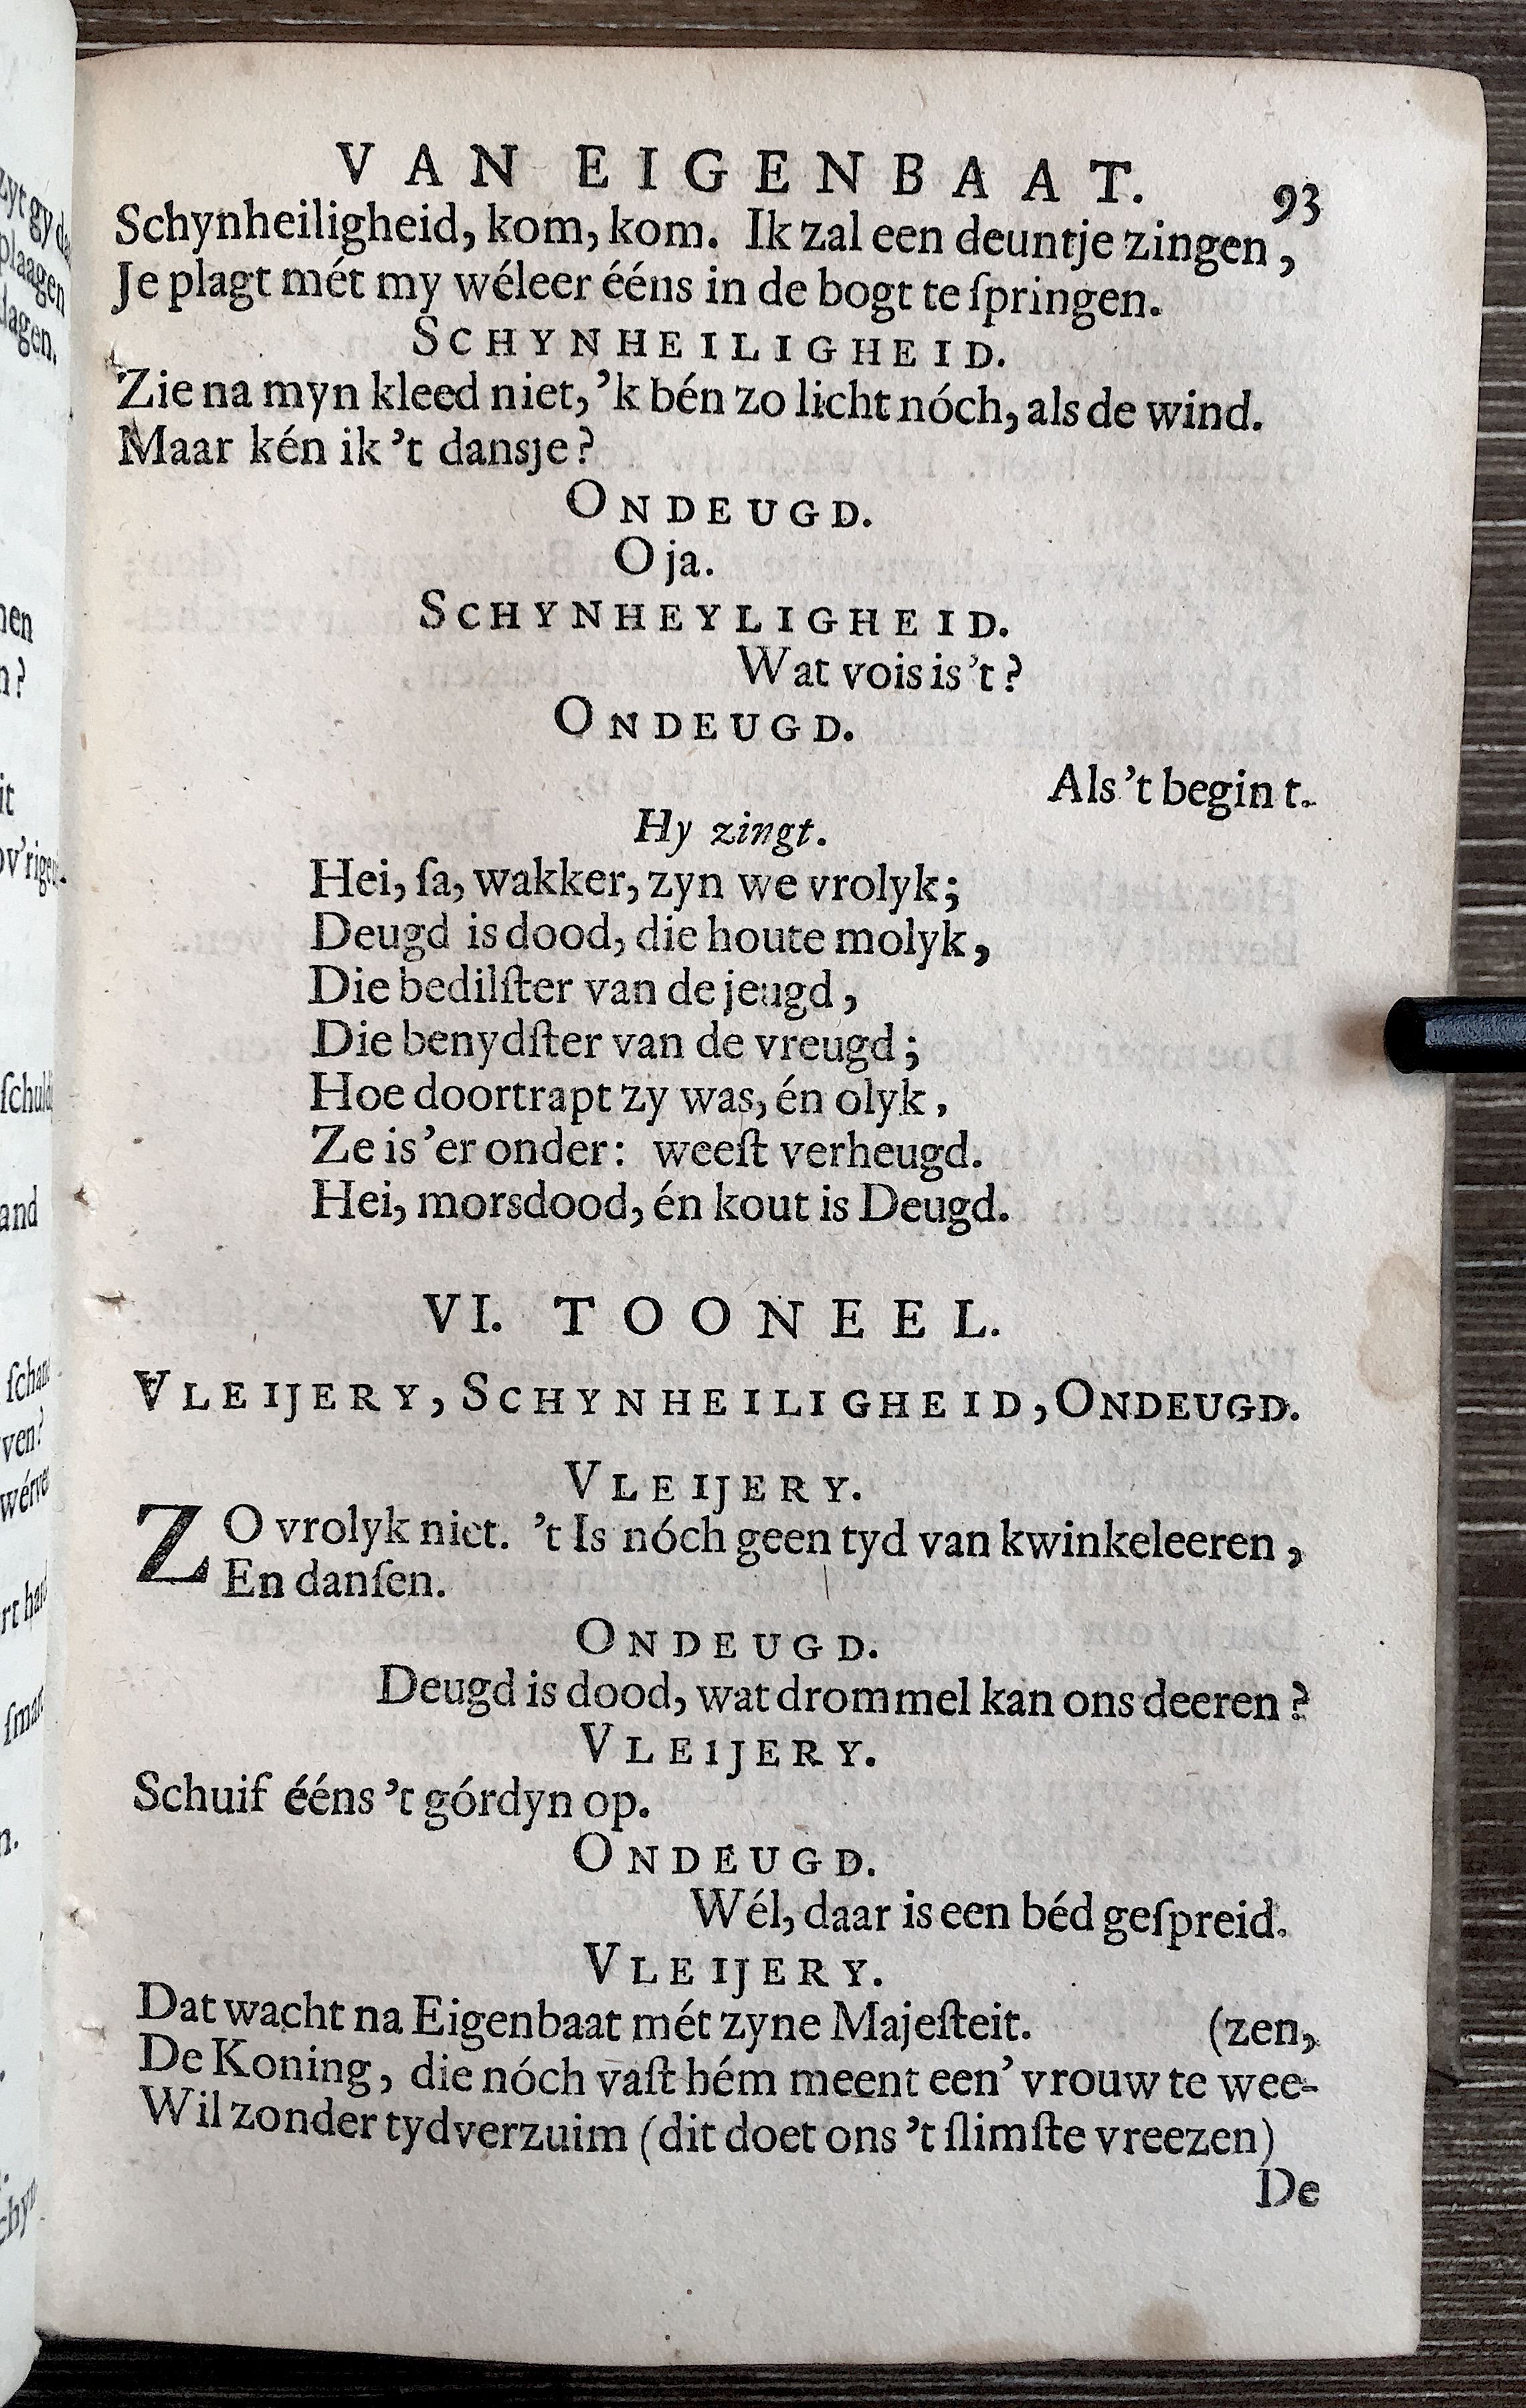 VAN EIGENBAAT. 93
Schynheiligheid, kom, kom. Ik zal een deuntje zingen,
Je plagt mét my wéleer ééns in de bogt te ſpringen.
SCHYNHEILIGHEID.
Zie na myn kleed niet, 'k bén zo licht nóch, als de wind.
Maar kén ik 't dansje?
ONDEUGD.
O ja.
SCHYNHEYLIGHEID.
Wat vois is 't?
ONDEUGD.
Als 't begint.
Hy zingt.
Hei, ſa, wakker, zyn we vrolyk;
Deugd is dood, die houte molyk,
Die bedilſter van de jeugd,
Die benydſter van de vreugd;
Hoe doortrapt zy was, én olyk,
Ze is 'er onder: weeſt verheugd.
Hei, morsdood, én kout is Deugd.
VI. TOONEEL.
VLEIJERY, SCHYNHEILIGHEID, ONDEUGD.
VLEIJERY.
ZO vrolyk niet. 't Is nóch geen tyd van kwinkeleeren,
En danſen.
ONDEUGD.
Deugd is dood, wat drommel kan ons deeren?
VLEIJERY.
Schuif ééns 't górdyn op.
ONDEUGD.
Wél, daar is een béd geſpreid.
VLEIJERY.
Dat wacht na Eigenbaat mét zyne Majeſteit. (zen,
De Koning, die nóch vaſt hém meent een' vrouw te wee-
Wil zonder tydverzuim (dit doet ons 't ſlimſte vreezen)
De